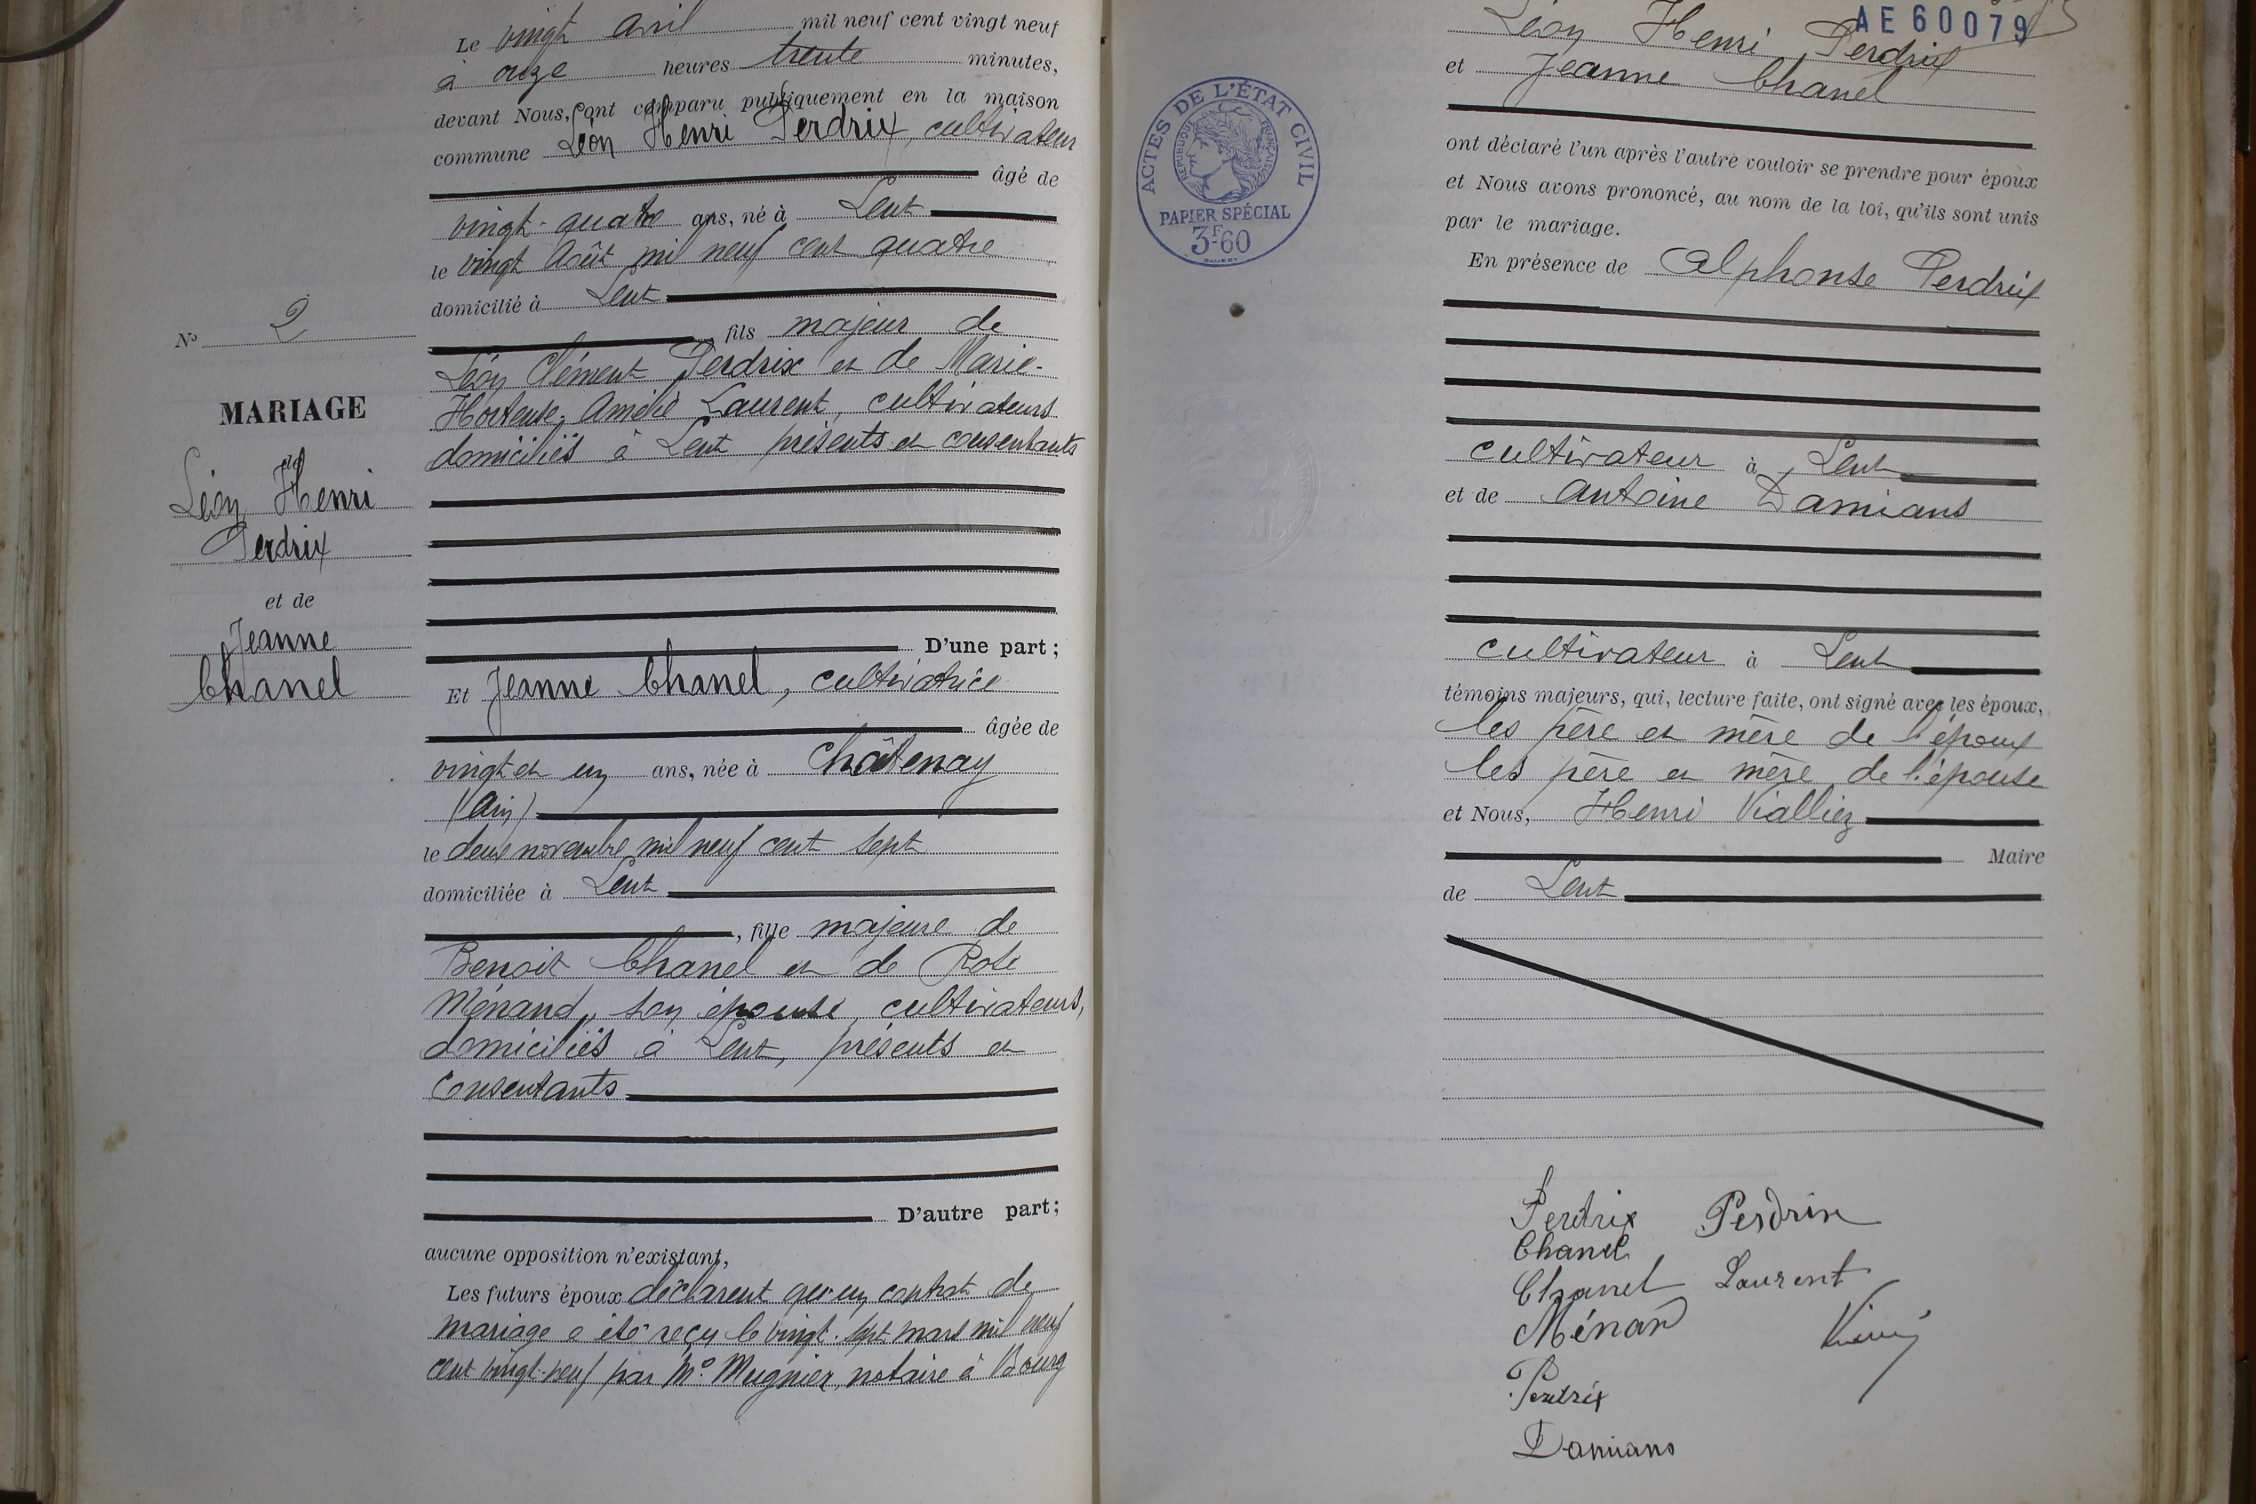 Le vingt avril mil neuf cent vingt neuf
à onze heures trente minutes,
devant Nous, ont comparu publiquement en la maison
commune Léon Henri Perdrix, cultivateur
âgé de
vingt-quatre ans, né à Lent
le vingt Août mil neuf cent quatre
domicilié à Lent
, fils majeur de
Léon Clément Perdrix et de Marie-
Hortense, Amélie Laurent, cultivateurs
domiciliés à Lent présents et consentants
D'une part ;
Et Jeanne Chanel, cultivatrice
âgée de
vingt et un ans, née à Châtenay
(Ain)
le deux novembre mil neuf cent sept
domiciliée à Lent
, fille majeure de
Benoit Chanel et de Rose
Ménand, son épouse, cultivateurs,
domiciliés à Lent, présents et
consentants
D'autre part ;
aucune opposition n'existant,
Les futurs époux déclarent qu'un contrat de
mariage a été reçu le vingt-sept mars mil neuf
cent vingt-neuf par Me Mugnier, notaire à Bourg
No 2
MARIAGE
de
Léon Henri
Perdrix
et de
Jeanne
Chanel
AE60079
Léon Henri Perdrix
et Jeanne Chanel
ont déclaré l'un après l'autre vouloir se prendre pour époux
et Nous avons prononcé, au nom de la loi, qu'ils sont unis
par le mariage.
En présence de Alphonse Perdrix
cultivateur à Lent
et de Antoine Damians
cultivateur à Lent
témoins majeurs, qui, lecture faite, ont signé avec les époux,
les père et mère de l'époux
les père et mère de l'épouse
et Nous, Henri Vialliez
Maire
de Lent
ACTES DE L'ÉTAT CIVIL
RÉPUBLIQUE FRANÇAISE
PAPIER SPÉCIAL
3F60
Perdrix Perdrix
Chanel
Chanel Laurent
Ménand
Perdrix
Damians